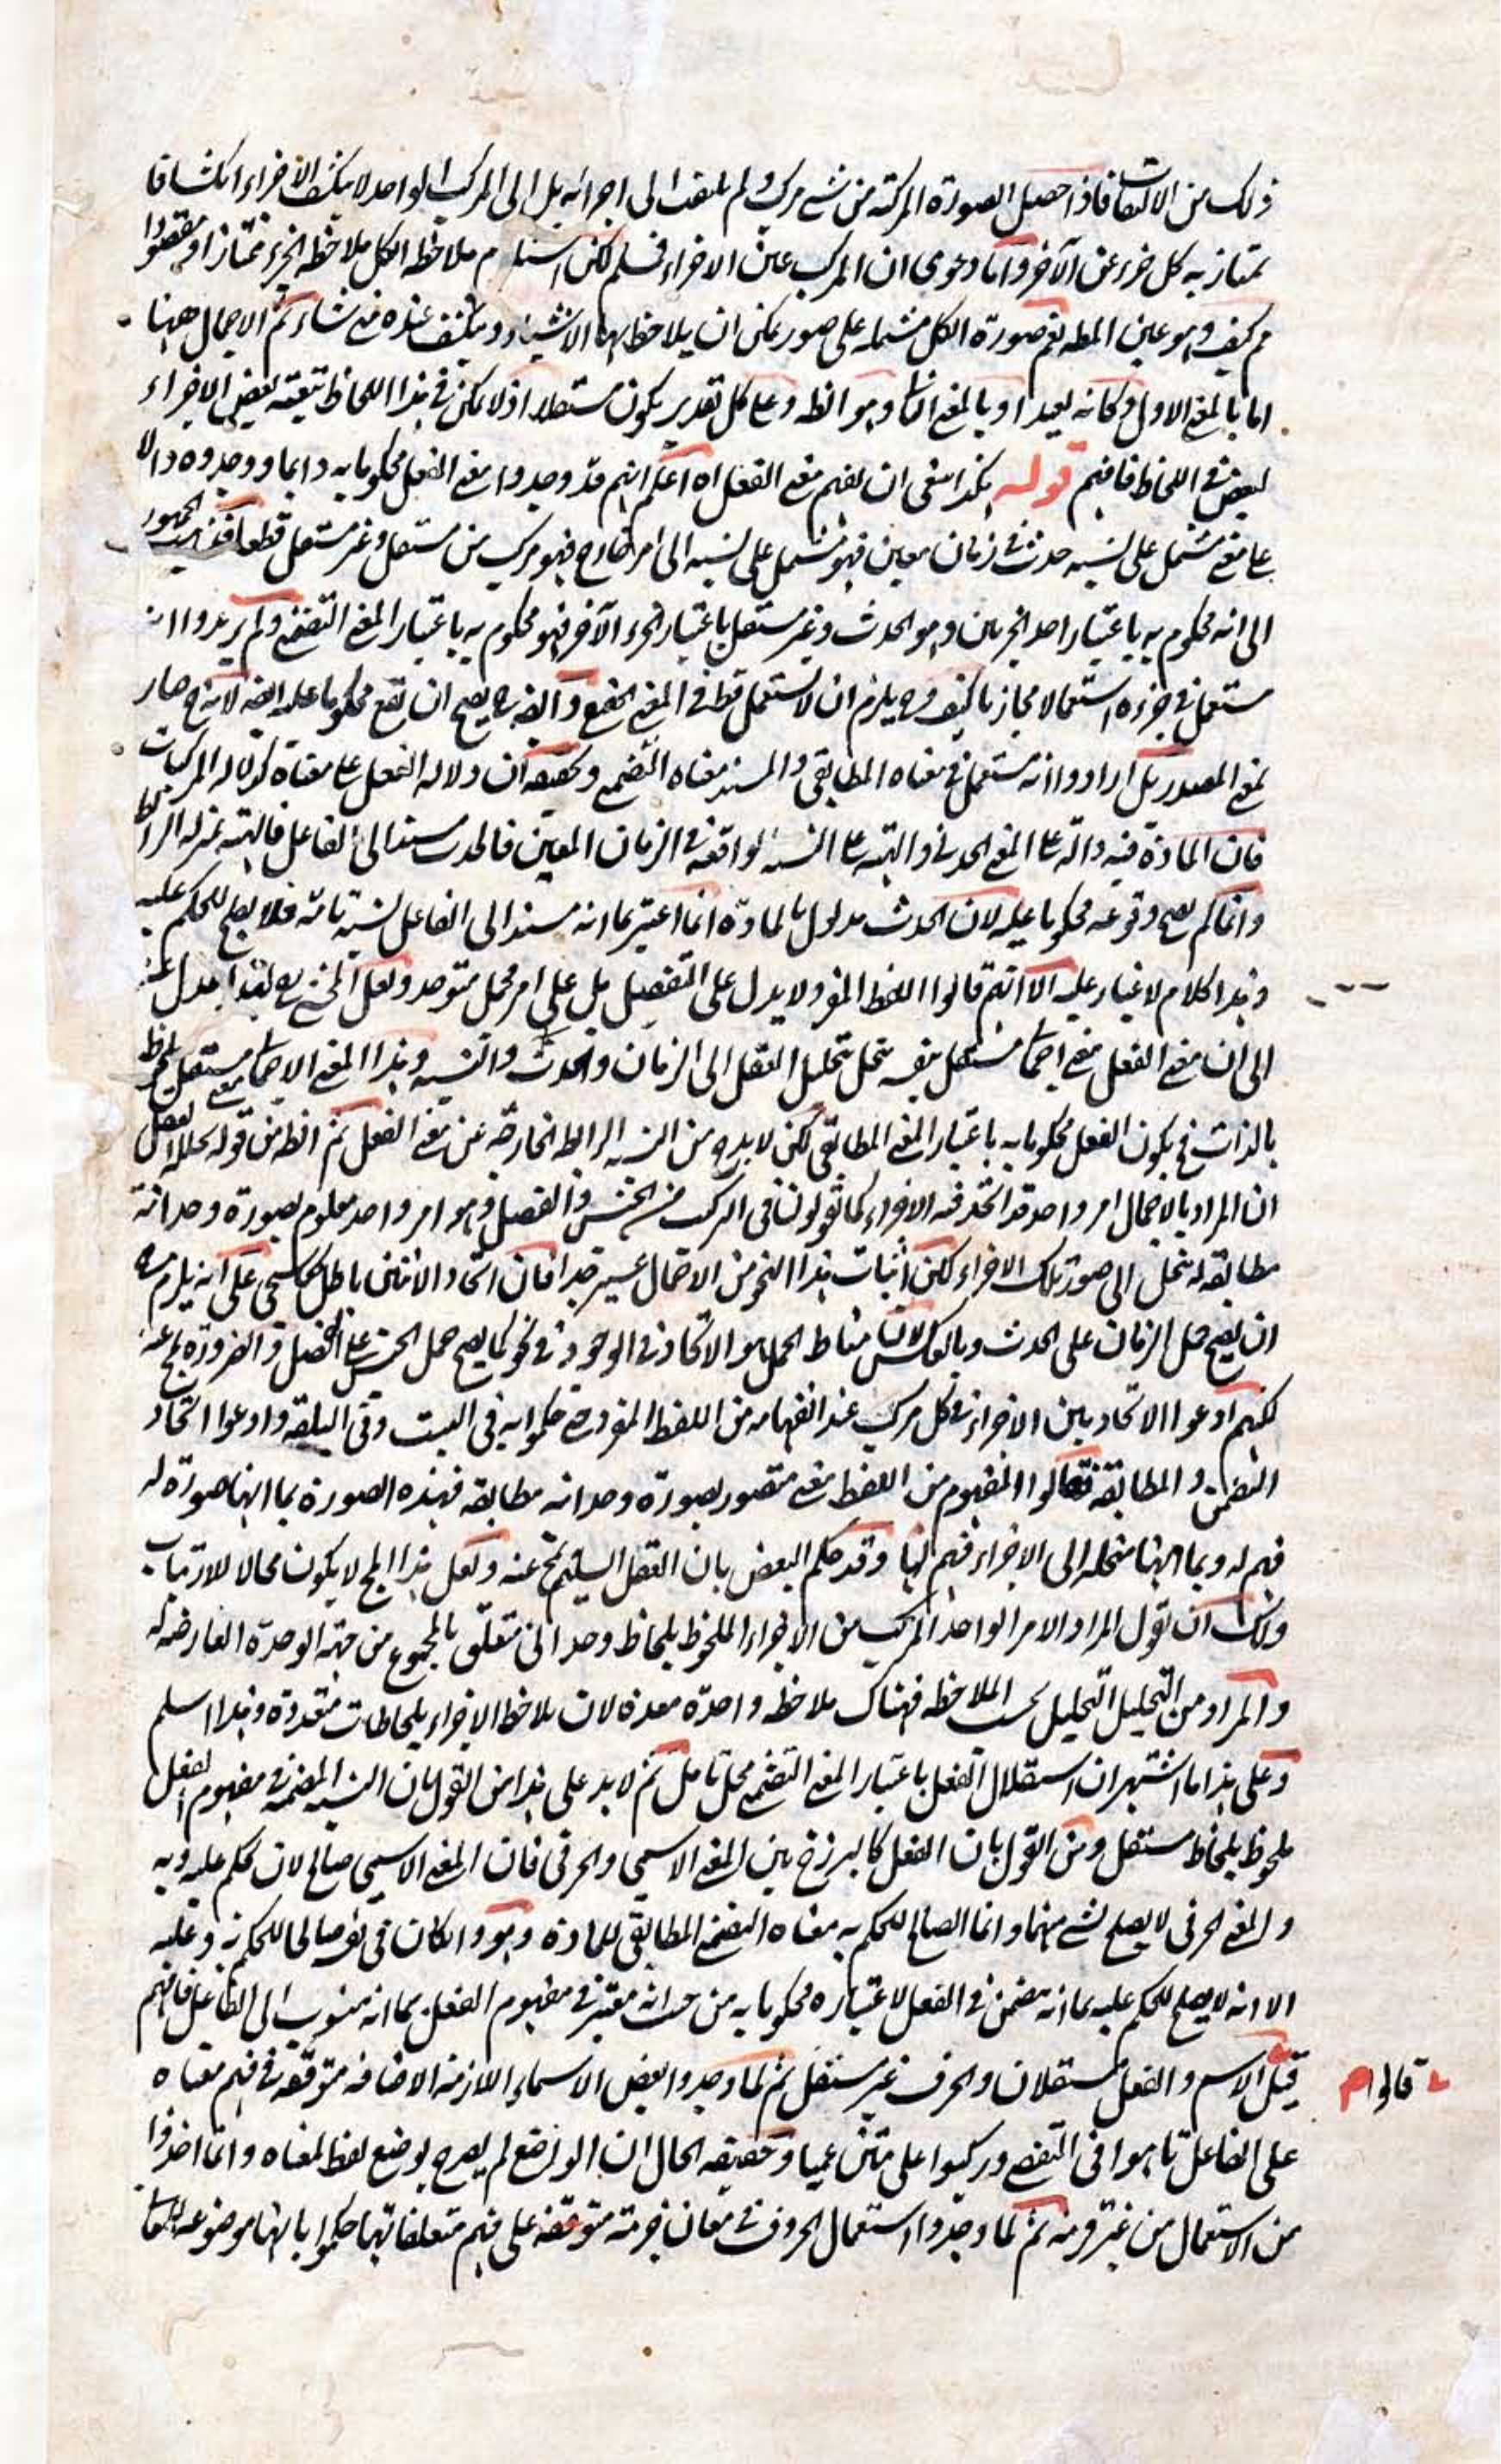 ذلك من الالتفات فاذا حصل الصورة المركبة من شئ مركب ولم يلتفت الى اجزائه بل الى المركب الواحد لا ينكشف الاجزاء انكشافا
يمتاز به كل جزء عن الآخر واما دعوى ان المركب عين الاجزاء فمسلم لكن استلزام ملاحظة الكل ملاحظة الجزء ممتازا او مقصودا
مم كيف وهو عين المط نعم صورة الكل مشتملة على صور يمكن ان يلاحظ بها الاشياء وينكشف عنده متى شاء ثم الاجمال ههنا
اما بالمعنى الاول وكانه بعيد او بالمعنى الثانى وهو الظ وعلى كل تقدير يكون مستقلا اذ لا يمكن فى هذا اللحاظ تبعية بعض الاجزاء
لبعض فى اللحاظ فافهم قوله هكذا ينبغى ان يفهم معنى الفعل اه اعلم انهم قد وجدوا معنى الفعل محكوما به دائما ووجدوه دالا
على معنى مشتمل على نسبة حدث فى زمان معين فهو مشتمل على نسبة الى امر خارج فهو مركب من مستقل وغير مستقل قطعا فذهب الجمهور
الى انه محكوم به باعتبار احد الجزئين وهو الحدث وغير مستقل باعتبار الجزء الآخر فهو محكوم به باعتبار المعنى التضمنى ولم يريدوا انه
مستعمل فى جزئه استعمالا مجازيا كيف وح يلزم ان لا يستعمل قط فى المعنى الحقيقى وايضا ح يصح ان يقع محكوما عليه ايضا لانه ح صار
بمعنى المصدر بل ارادوا انه مستعمل فى معناه المطابقى والمسند معناه التضمنى وتحقيقه ان دلالة الفعل على معناه كدلالة المركبات
فان المادة فيه دالة على المعنى الحدثى والهيئة على النسبة الواقعة فى الزمان المعين فالحدث مسند الى الفاعل فالهيئة بمنزلة الرابط
وانما لم يصح وقوعه محكوما عليه لان الحدث مدلول بالمادة انما اعتبر بما انه مسند الى الفاعل نسبة تامة فلا يصلح للحكم عليه
وهذا كلام لا غبار عليه الا انهم قالوا اللفظ المفرد لا يدل على التفصيل بل على امر مجمل متوحد ولعل المحشى رح لهذا عدل عنه
الى ان معنى الفعل معنى اجمالى مستقل بنفسه ينحل بتحليل العقل الى الزمان والحدث والنسبة وهذا المعنى الاجمالى معنى مستقل ملحوظ
بالذات فح يكون الفعل محكوما به باعتبار المعنى المطابقى لكن لا بد ح من النسبة الرابطة الخارجة عن معنى الفعل ثم الظ من قوله يحلله العقل
ان المراد بالاجمال امر واحد قد اتحد فيه الاجزاء كما يقولون فى المركب من الجنس والفصل وهو امر واحد معلوم بصورة وحدانية
مطابقة له ينحل الى صور تلك الاجزاء لكن اثبات هذا النحو من الاجمال عسير جدا فان اتحاد الاثنين باطل كما سيجئ على انه يلزم منه
ان يصح حمل الزمان على الحدث وبالعكس لان مناط الحمل هو الاتحاد فى الوجود فى نحو كما يصح حمل الجنس على الفصل والضرورة تمج عنه
لكنهم ادعوا الاتحاد بين الاجزاء فى كل مركب عند انفهامه من اللفظ المفرد حتى حكموا به فى البيت وفى البلقة وادعوا اتحاد
التضمن والمطابقة فقالوا المفهوم من اللفظ معنى متصور بصورة وحدانية مطابقة فهذه الصورة بما انها صورة له
فهم له وبما انها منحلة الى الاجزاء فهم لها وقد حكم البعض بان العقل السليم يمج عنه ولعل هذا المج لا يكون محالا للارتياب
ولك ان تقول المراد الامر الواحد المركب من الاجزاء الملحوظ بلحاظ وحدانى متعلق بالمجموع من جهة الوحدة العارضة له
والمراد من التحليل التحليل بحسب الملاحظة فهناك ملاحظة واحدة معدة لان يلاحظ الاجزاء بلحاظات متعددة وهذا اسلم
وعلى هذا ما اشتهر ان استقلال الفعل باعتبار المعنى التضمنى محل تامل ثم لا بد على هذا من القول بان النسبة المضمنة فى مفهوم الفعل
ملحوظ بلحاظ مستقل ومن القول بان الفعل كالبرزخ بين المعنى الاسمى والحرفى فان المعنى الاسمى صالح لان يحكم عليه وبه
والمعنى الحرفى لا يصلح لشئ منهما وانما الصالح للحكم به معناه التضمنى المطابقى للمادة وهو وان كان فى نفسه صالحا للحكم به وعليه
الا انه لا يصلح للحكم عليه بما انه متضمن فى الفعل لاعتباره محكوما به من حيث انه معتبر فى مفهوم الفعل بما انه منسوب الى الفاعل فافهم
قيل الاسم والفعل مستقلان والحرف غير مستقل ثم لما وجدوا بعض الاسماء اللازمة الاضافة متوقفة فى فهم معناه
قالوا
على الفاعل تاهوا فى التفصى وركبوا على متن عميا وحقيقة الحال ان الواضع لم يصرح بوضع لفظ لمعناه وانما اخذوا
من الاستعمال من غير قرينة ثم لما وجدوا استعمال الحروف فى معان جزئية متوقفة على فهم متعلقاتها حكموا بانها موضوعة لمعان